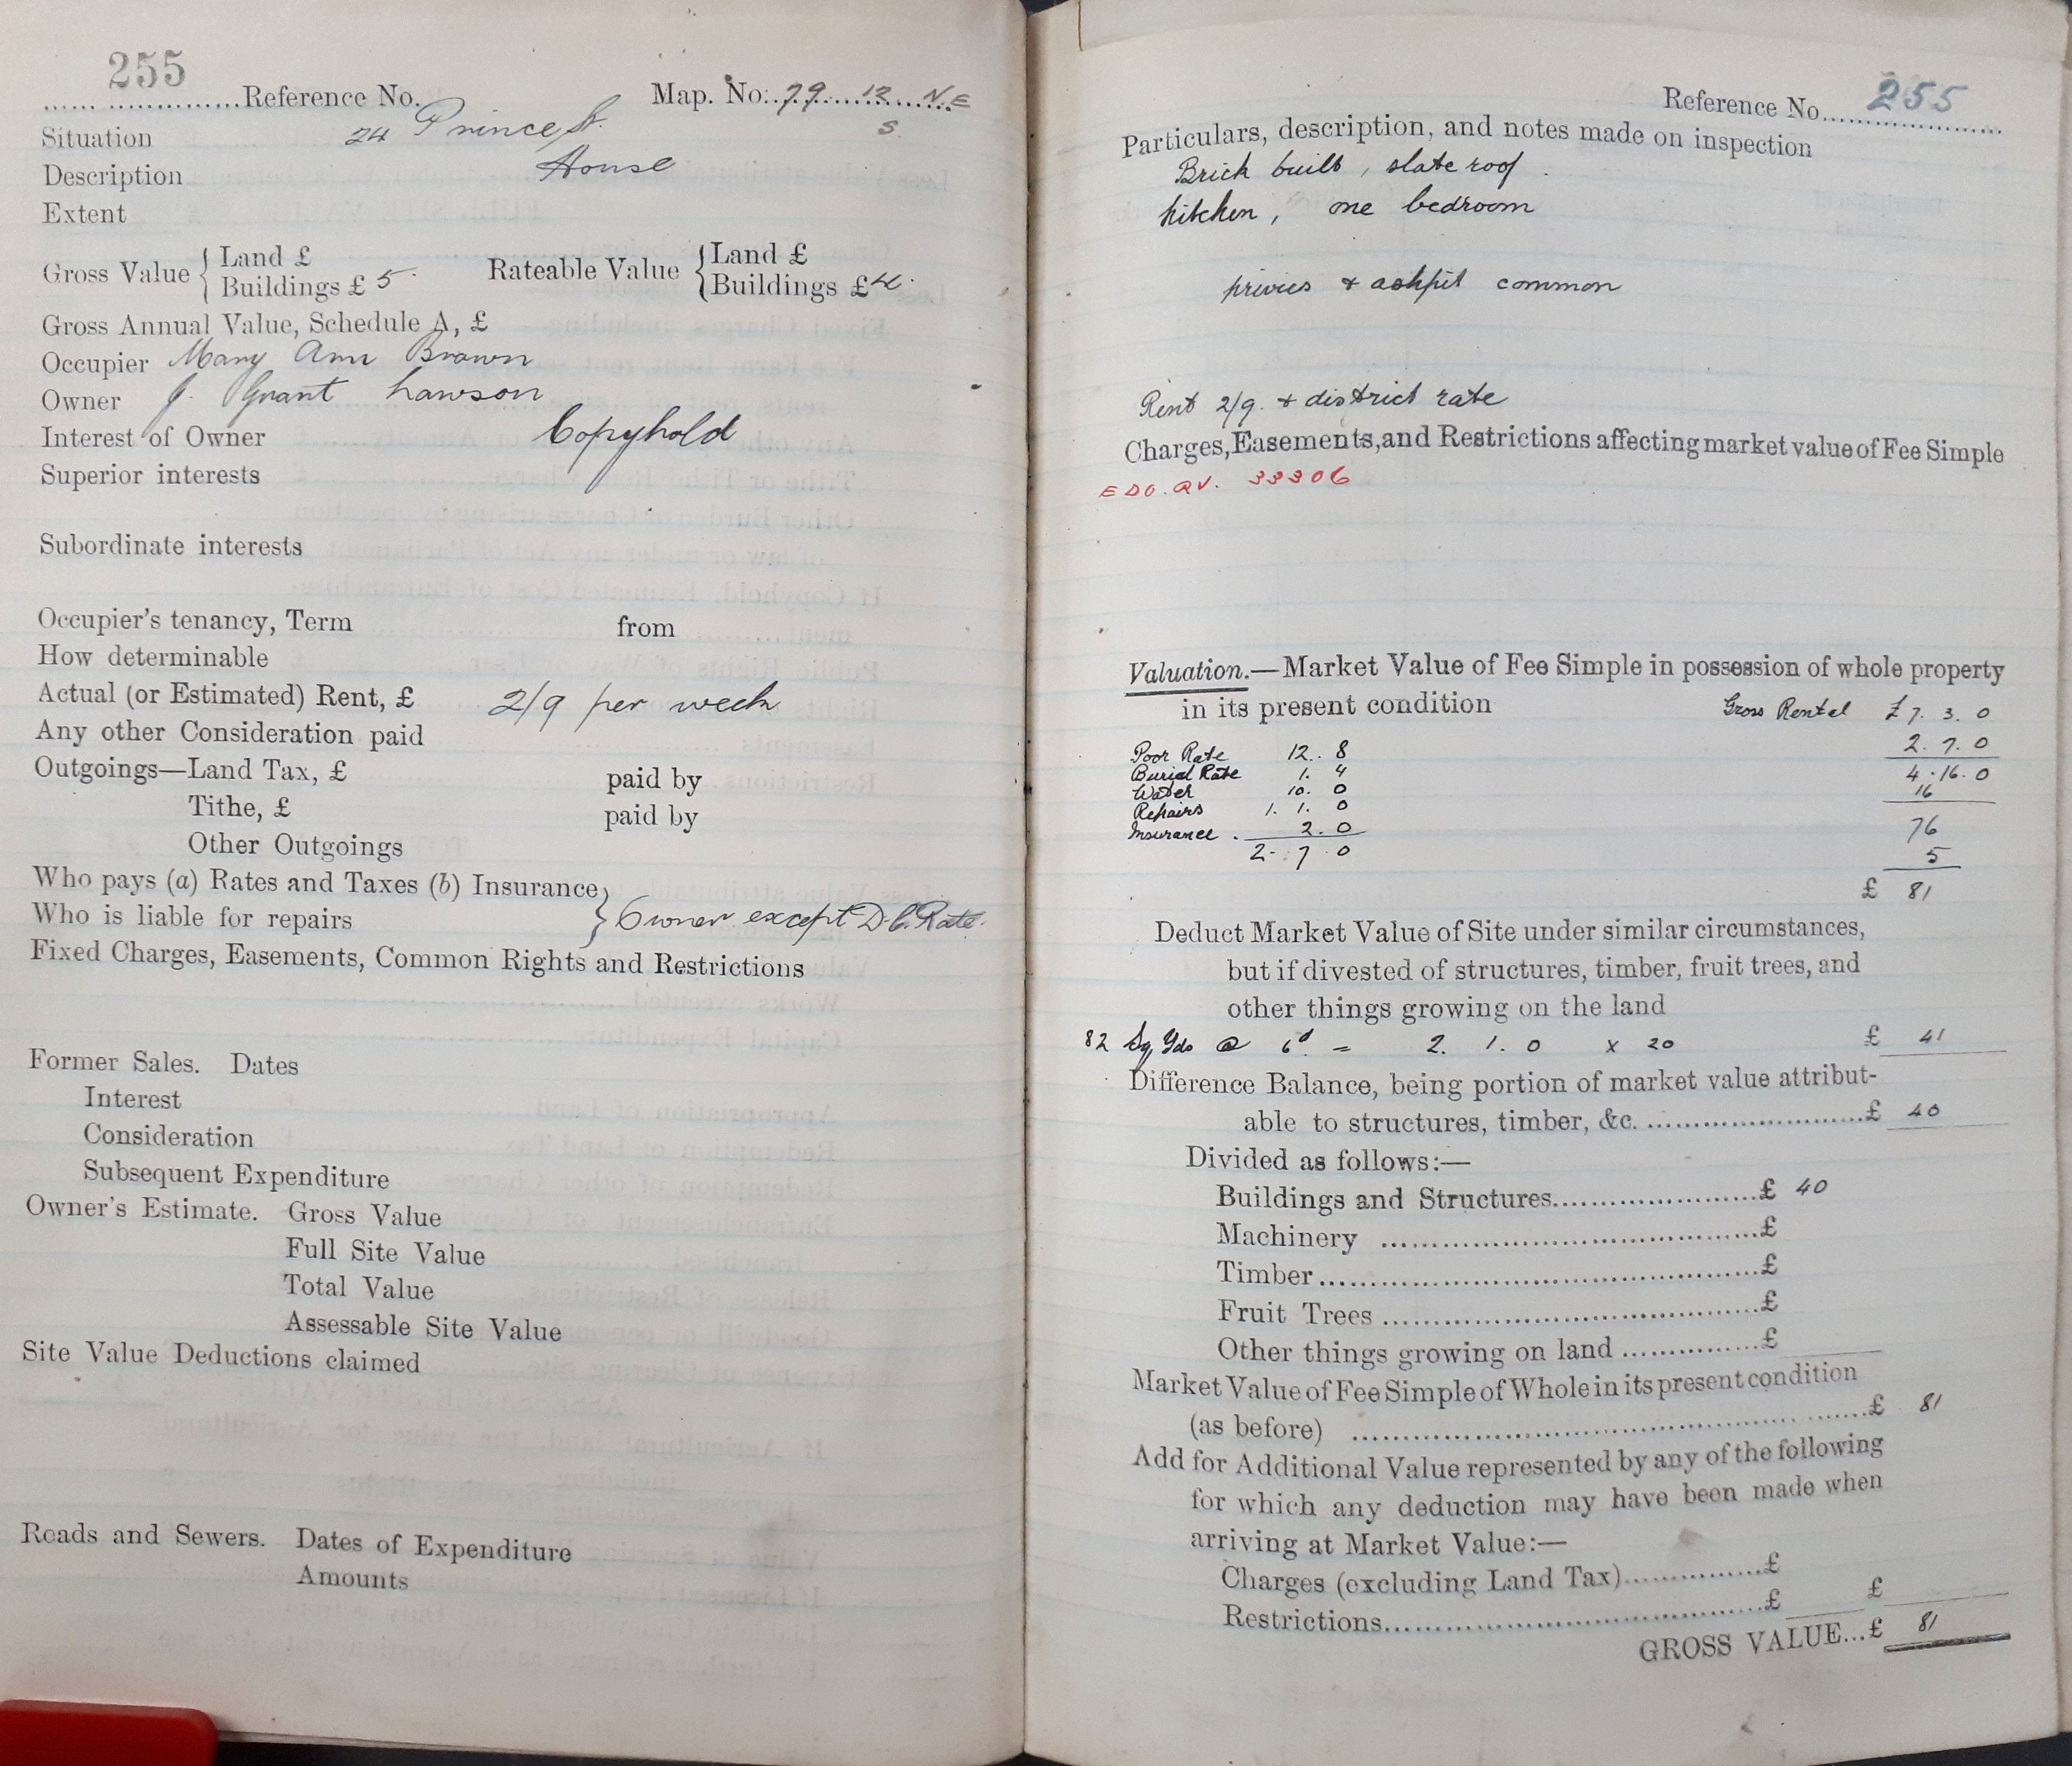 255
Reference No. Map. No. 79 12 N.E
S.
Situation 24 Prince St.
Description House
Extent
Gross Value { Land £
Buildings £ 5
Rateable Value { Land £
Buildings £ 4
Gross Annual Value, Schedule A, £
Occupier Mary Ann Brown
Owner J. Grant Lawson
Interest of Owner Copyhold
Superior interests
Subordinate interests
Occupier's tenancy, Term from
How determinable
Actual (or Estimated) Rent, £ 2/9 per week
Any other Consideration paid
Outgoings—Land Tax, £ paid by
Tithe, £ paid by
Other Outgoings
Who pays (a) Rates and Taxes (b) Insurance
Who is liable for repairs } Owner except D.C. Rate.
Fixed Charges, Easements, Common Rights and Restrictions
Former Sales. Dates
Interest
Consideration
Subsequent Expenditure
Owner's Estimate. Gross Value
Full Site Value
Total Value
Assessable Site Value
Site Value Deductions claimed
Roads and Sewers. Dates of Expenditure
Amounts
Reference No. 255
Particulars, description, and notes made on inspection
Brick built, slate roof.
kitchen, one bedroom
privies & ashpit common
Rent 2/9. & district rate
Charges, Easements, and Restrictions affecting market value of Fee Simple
EDO. QV. 33306
Valuation.—Market Value of Fee Simple in possession of whole property
in its present condition Gross Rental £7. 3. 0
2. 7. 0
Poor Rate 12. 8
Burial Rate 1. 4
Water 10. 0
Repairs 1. 1. 0
Insurance. 2. 0
2. 7. 0
4. 16. 0
16
76
5
£ 81
Deduct Market Value of Site under similar circumstances,
but if divested of structures, timber, fruit trees, and
other things growing on the land
82 Sq Yds @ 6d = 2. 1. 0 x 20 £ 41
Difference Balance, being portion of market value attribut-
able to structures, timber, &c. £ 40
Divided as follows:—
Buildings and Structures £ 40
Machinery £
Timber £
Fruit Trees £
Other things growing on land £
Market Value of Fee Simple of Whole in its present condition
(as before) £ 81
Add for Additional Value represented by any of the following
for which any deduction may have been made when
arriving at Market Value:—
Charges (excluding Land Tax) £
Restrictions £ £
GROSS VALUE...£ 81